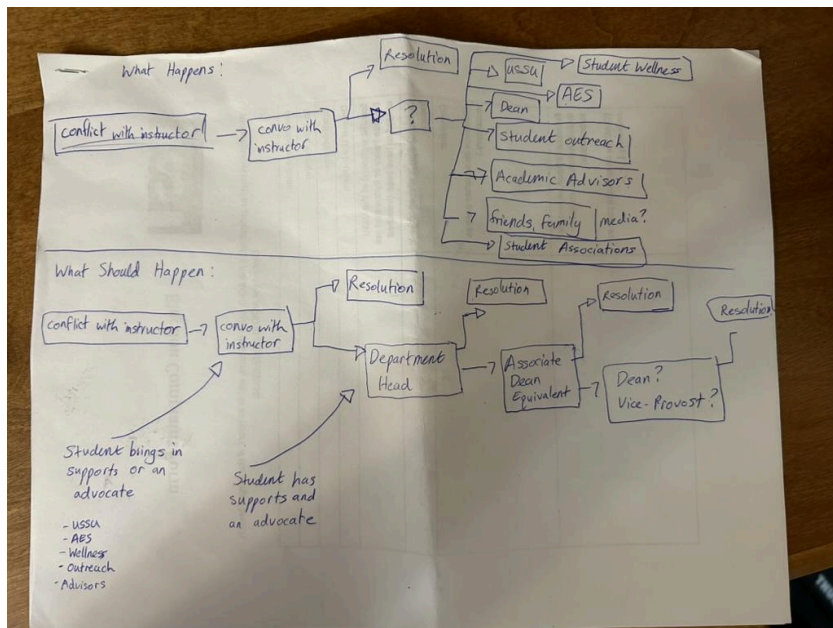 What Happens:
conflict with instructor
convo with
instructor
Resolution
?
Student Wellness
USSU
AES
Dean
Student outreach
Academic Advisors
friends, family media?
Student Associations
What Should Happen:
conflict with instructor
convo with
instructor
Resolution
Department
Head
Resolution
Associate
Dean
Equivalent
Resolution
Dean?
Vice-Provost?
Resolution
Student brings in
supports or an
advocate
- USSU
- AES
- Wellness
- Outreach
- Advisors
Student has
supports and
an advocate